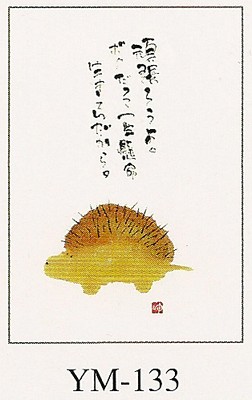 頑張ろうね。
ボクだって一生懸命
生きてるんだから。
YM-133